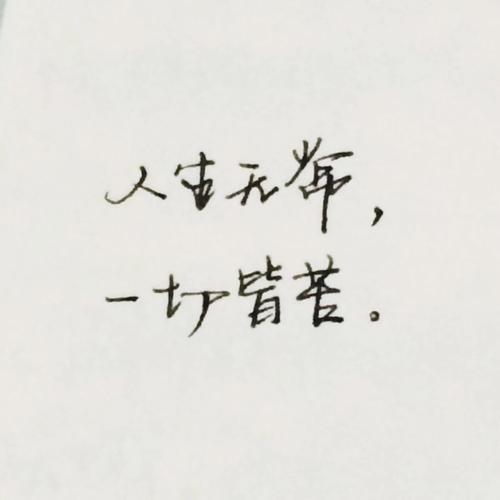 人生无常，
一切皆苦。